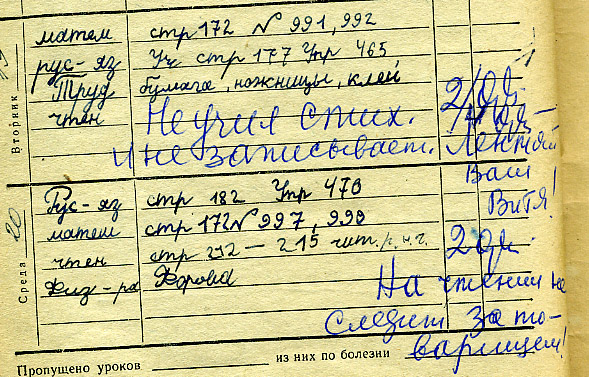 матем стр 172 № 991, 992
рус-яз Уч стр 177 Упр 465
Труд бумага, ножницы, клей
чтен Не учил стих. 2/Од.
и не записывает. Лентяй
Ваш
Витя!
Вторник
Рус-яз стр 182 Упр 470
матем стр 172 № 997, 990
чтен стр 212 — 215 чит. 2 Од.
Физ-ра Форма
На чтении не
следит за то-
варищем!
Среда 20
Пропущено уроков из них по болезни